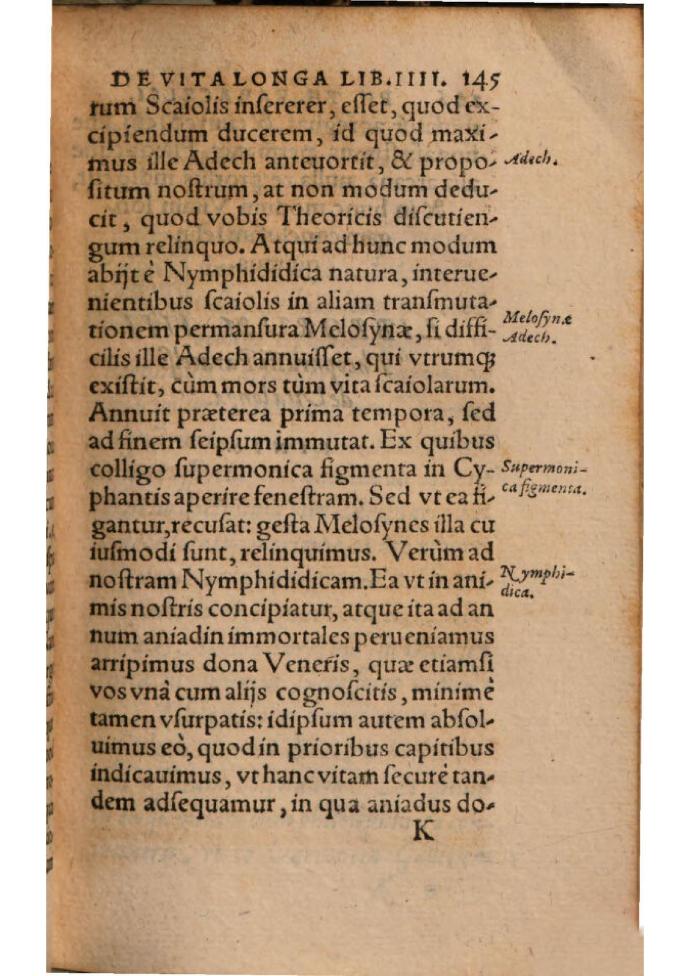 DE VITA LONGA LIB.IIII. 145
rum Scaiolis inſererer, eſſet, quod ex-
cipiendum ducerem, id quod maxi-
mus ille Adech anteuortit, & propo-
Adech.
ſitum noſtrum, at non modum dedu-
cit, quod vobis Theoricis diſcutien-
gum relinquo. Atqui ad hunc modum
abijt è Nymphididica natura, interue-
nientibus ſcaiolis in aliam tranſmuta-
tionem permanſura Meloſynæ, ſi diffi-
Meloſynæ
Adech.
cilis ille Adech annuiſſet, qui vtrumq;
exiſtit, cùm mors tùm vita ſcaiolarum.
Annuit præterea prima tempora, ſed
ad finem ſeipſum immutat. Ex quibus
colligo ſupermonica figmenta in Cy-
Supermoni-
ca figmenta.
phantis aperire feneſtram. Sed vt ea fi-
gantur, recuſat: geſta Meloſynes illa cu
iuſmodi ſunt, relinquimus. Verùm ad
noſtram Nymphididicam. Ea vt in ani-
Nymphi-
dica.
mis noſtris concipiatur, atque ita ad an
num aniadin immortales perueniamus
arripimus dona Veneris, quæ etiamſi
vos vnà cum alijs cognoſcitis, minimè
tamen vſurpatis: idipſum autem abſol-
uimus eò, quod in prioribus capitibus
indicauimus, vt hanc vitam ſecurè tan-
dem adſequamur, in qua aniadus do-
K